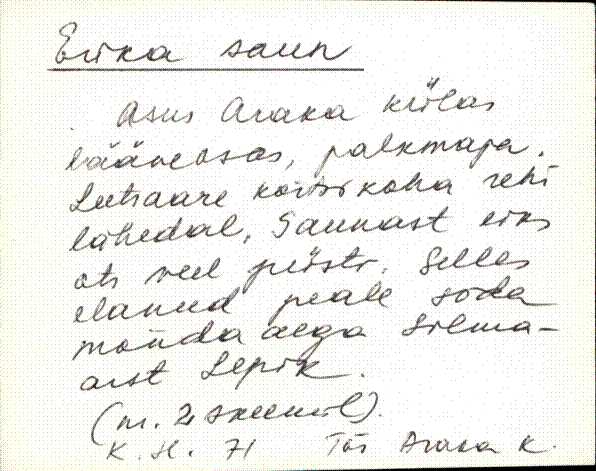 Erika saun
Asus Araka külas
lääneosas, palkmaja.
Leetsaare kõrtsikoha rehi
lähedal, Saunast üks
ots veel püsti. Selles
elanud peale sõda
mõnda aega silma-
arst Lepik.
(nr. 2 skeemil).
K. H. 71 Tõs Araka k.